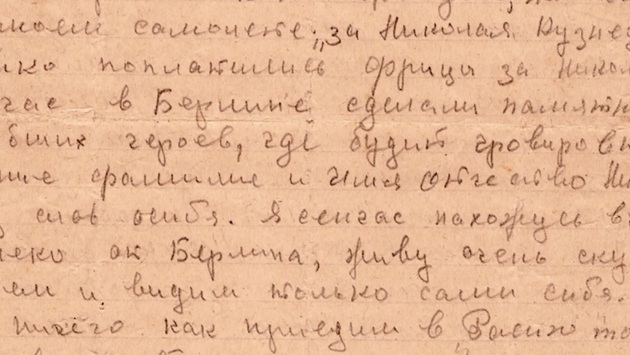 моем самолете: „за Николая Кузне
ко поплатились фрицы за Никол
час в Берлине сделали памятн
бших героев, где будит гровиров
ние фамилие и имя отчество Ни
слов особя. Я сейчас нахожусь в
леко от Берлина, живу очень ску
ем и видим только сами сибя.
ничего как приедим в Расию то